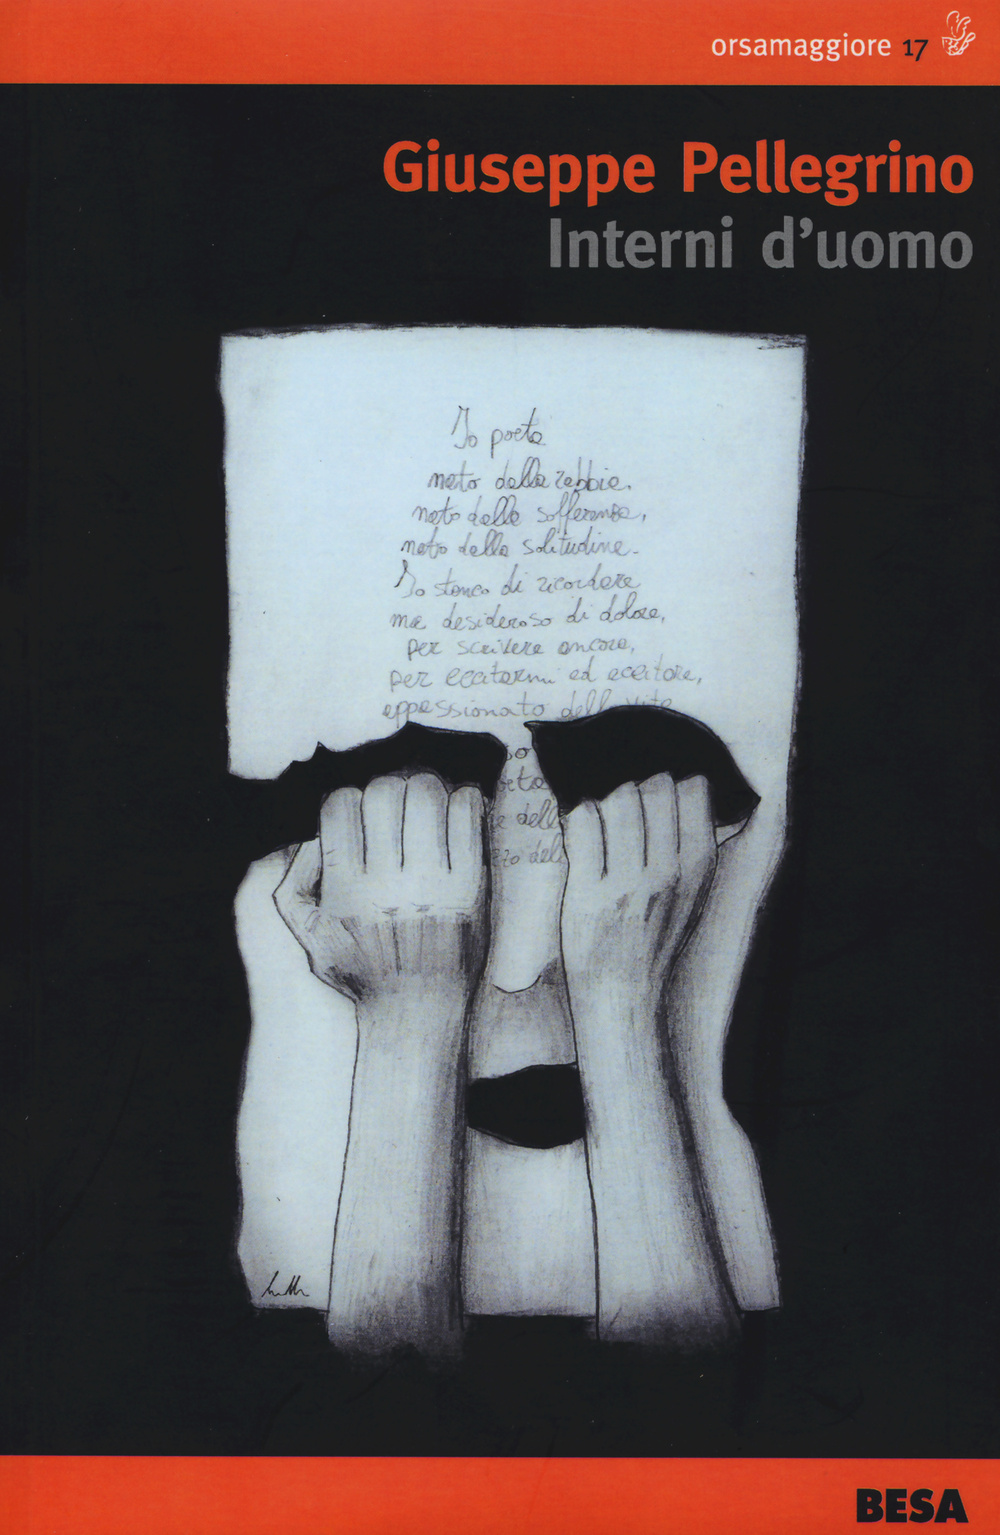 orsamaggiore 17
Giuseppe Pellegrino
Interni d'uomo
Io poeta
nato dalla rabbia,
nato dalla sofferenza,
nato dalla solitudine.
Io stanco di ricordare
ma desideroso di dolore,
per scrivere ancora,
per eccitarmi ed eccitare,
appassionato della vita
BESA